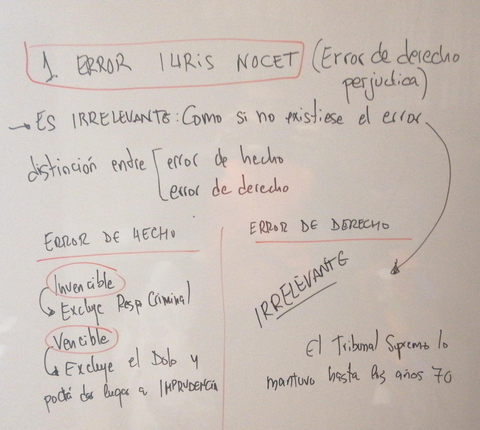 1. ERROR IURIS NOCET (Error de derecho
perjudica)
→ ES IRRELEVANTE: Como si no existiese el error
distinción entre [error de hecho
error de derecho
ERROR DE HECHO
Invencible
Excluye Resp Criminal
Vencible
Excluye el Dolo y
podrá dar lugar a IMPRUDENCIA
ERROR DE DERECHO
IRRELEVANTE
El Tribunal Supremo lo
mantuvo hasta los años 70